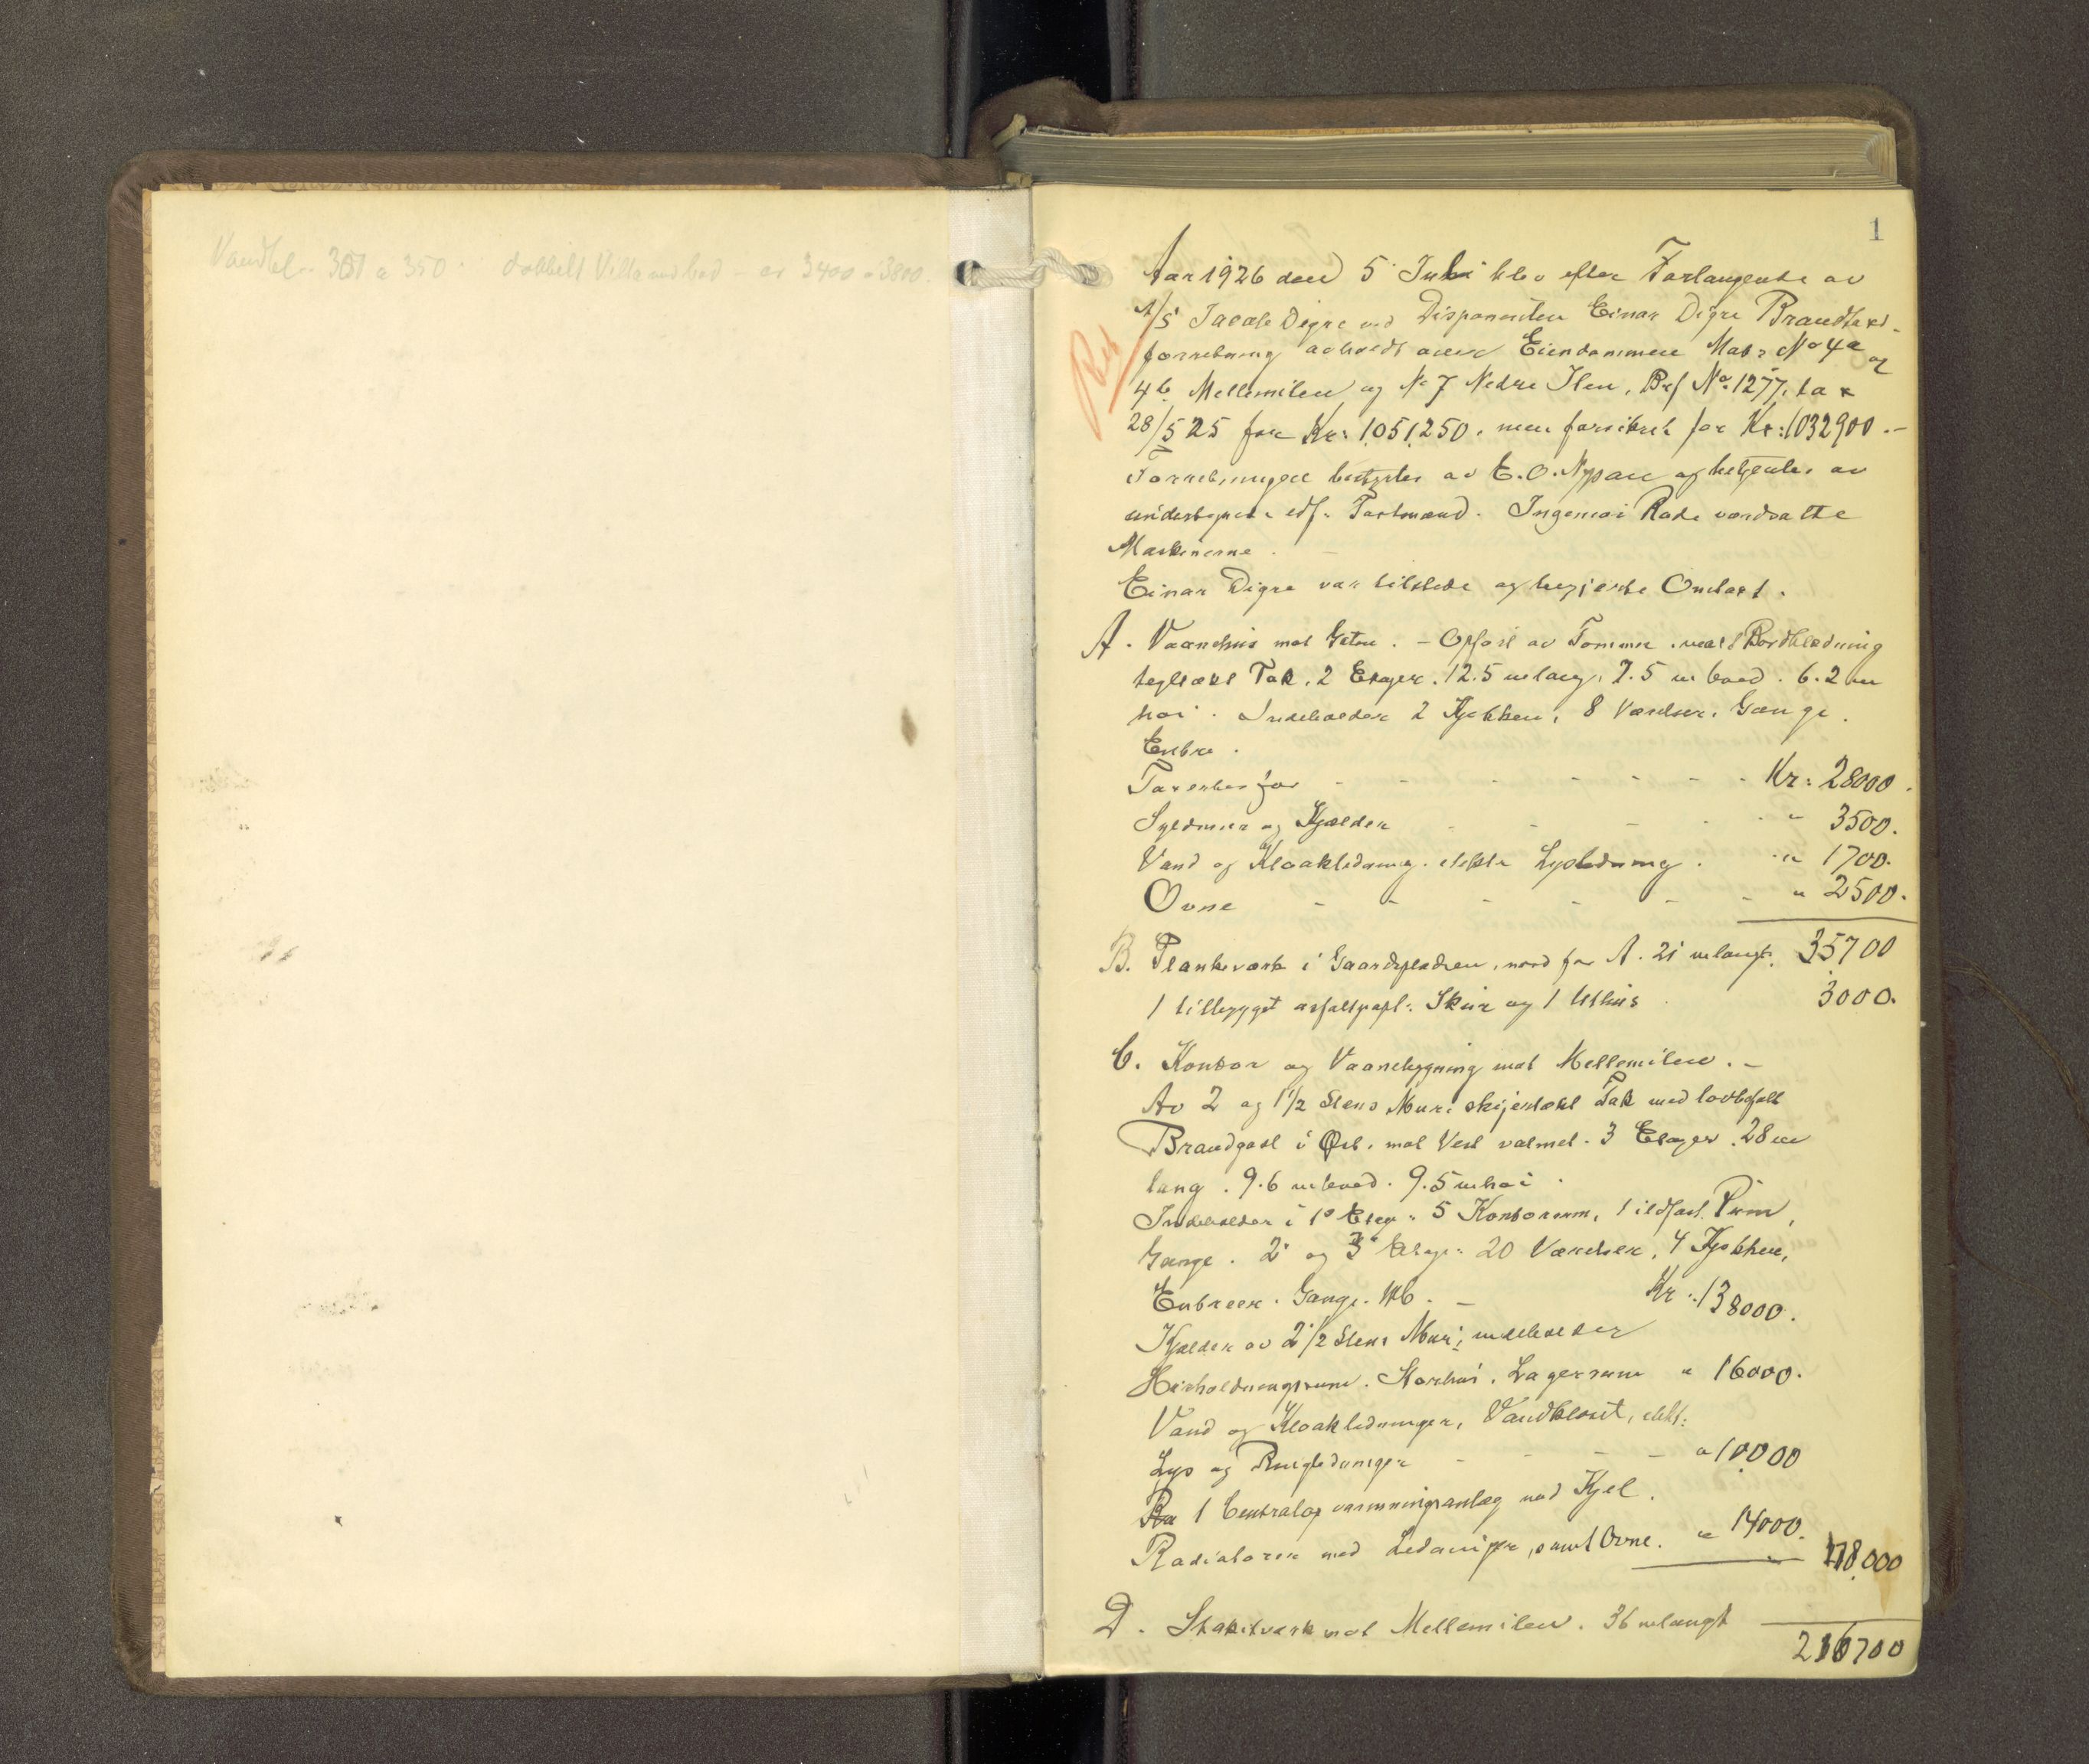 Vandkl. 301 a 350. dobbelt Villa med bad - er 3400 a 3800.
1
Aar 1926 den 5 Juli blev efter Forlangende av
A/S Jacob Digre ved Disponenten Einar Digre Brandtaxt-
forretning avholdt over Eiendommene Matr No 4a og
4b Mellemilen og No 7 Nedre Ilen, Brf No. 1277, tax
28/5 25 for Kr: 1.051.250. men forsikret for Kr: 1032900.-
Forretningen bestyrtes av E. O. Nypan og betjentes av
undertegnede edf. Taxtmænd. Ingeniør Rode værdsatte
Maskinerne.
Einar Digre var tilstede og begjerte Omtaxt.
Reb
A. Vaanehus mot Gaten. - Opført av Tømmer med Bordklædning
tegltækt Tak. 2 Etager. 12.5 m lang, 7.5 m bred. 6.2 m
høi. Indeholder 2 Kjøkken, 8 Værelser, Gange.
Entre.
Taxertes for - - - - - - Kr: 28000.
Syldmur og Kjelder - - - - " 3500.
Vand og Kloakledning. elektr Lysledning. " 1700.
Ovne - - - - - - " 2500.
35700
B. Plankeværk i Gaardspladsen, nord for A. 21 m langt.
1 tilbygget asfaltpapt. Skur og 1 Uthus 3000.
C. Kontor og Vaanebygning mot Mellemilen. -
Av 2 og 1 1/2 Stens Mur: skifertækt Tak med lovbefalt
Brandgavl i Øst. mot Vest valmet. 3 Etager. 28 m
lang. 9.6 m bred. 9.5 m høi.
Indeholder i 1ste Etage: 5 Kontorrum, 1 ildfast Rum,
Gange. 2. og 3. Etage: 20 Værelser, 4 Kjøkken,
Entreer. Gange. Wc. - Kr: 138000.
Kjelder av 2 1/2 Stens Mur; indeholder
Husholdningsrum. Rørhus. Lagerrum " 16000.
Vand og Kloakledninger, Vandklosit, elekt:
Lys og Ringledninger - - - " 10.000
Ra 1 Centralopvarmningsanlæg med Kjel.
Radiatorer med Ledninger, samt Ovne. " 14000.
178.000
D. Stakitværk mot Mellemilen. 36 m langt
216700